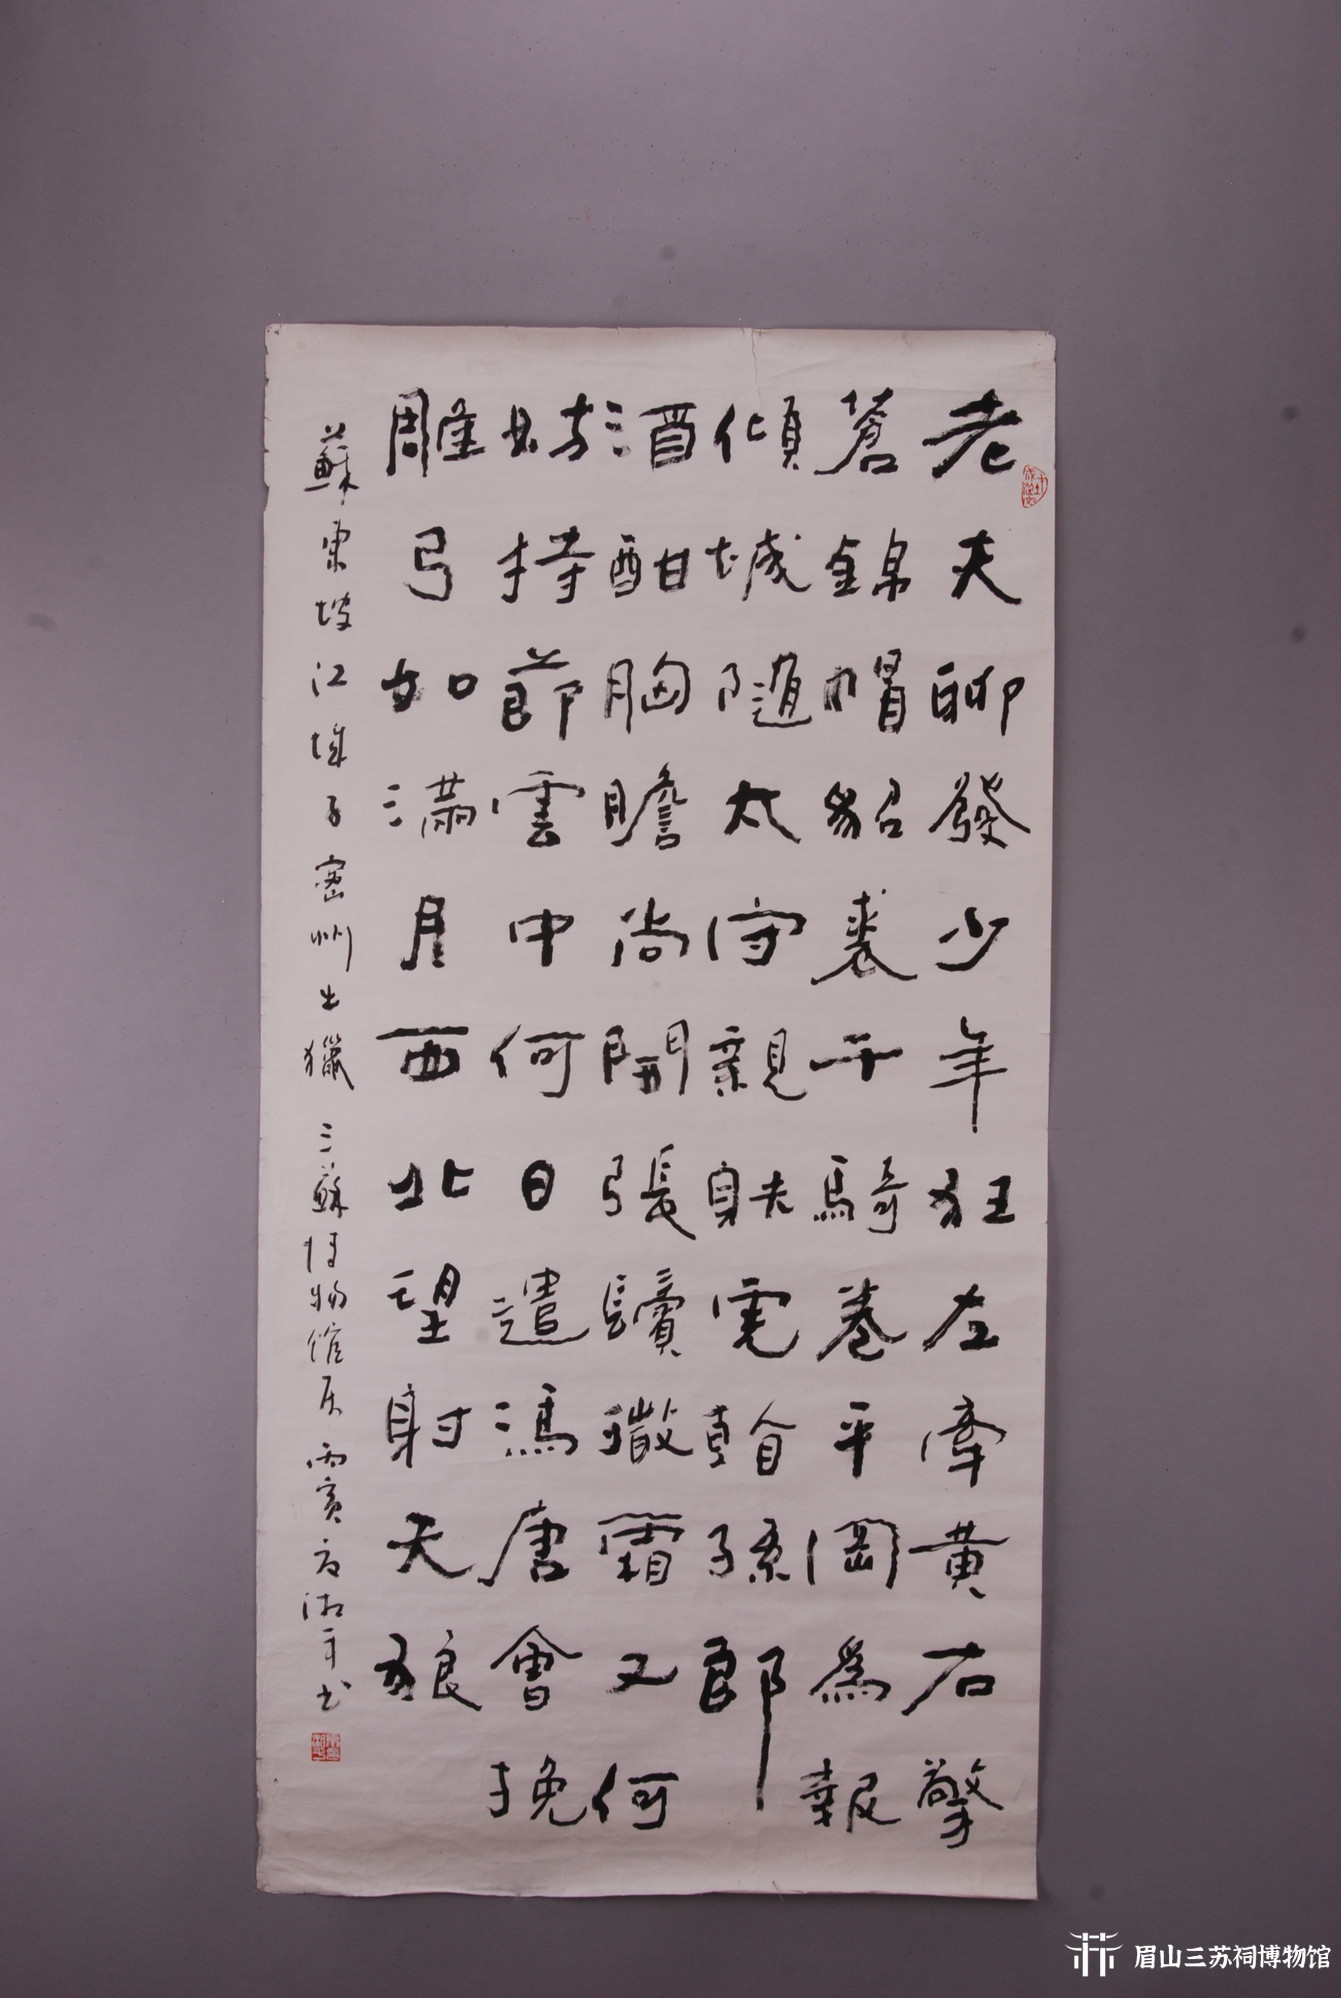 老夫聊發少年狂左牽黃右擎
蒼錦帽貂裘千騎卷平岡為報
傾城隨太守親䠶虎看孫郎
酒酣胸膽尚開張鬢微霜又何
妨持節雲中何日遣馮唐會挽
雕弓如滿月西北望射天狼
蘇東坡江城子密州出獵 三蘇博物館 丙寅 书
眉山三苏祠博物馆